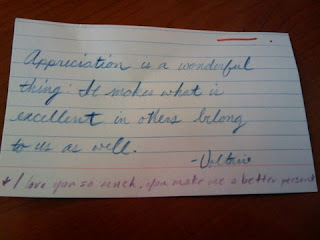 Appreciation is a wonderful
thing: It makes what is
excellent in others belong
to us as well.
-Voltaire
* I love you so much, you make me a better person!